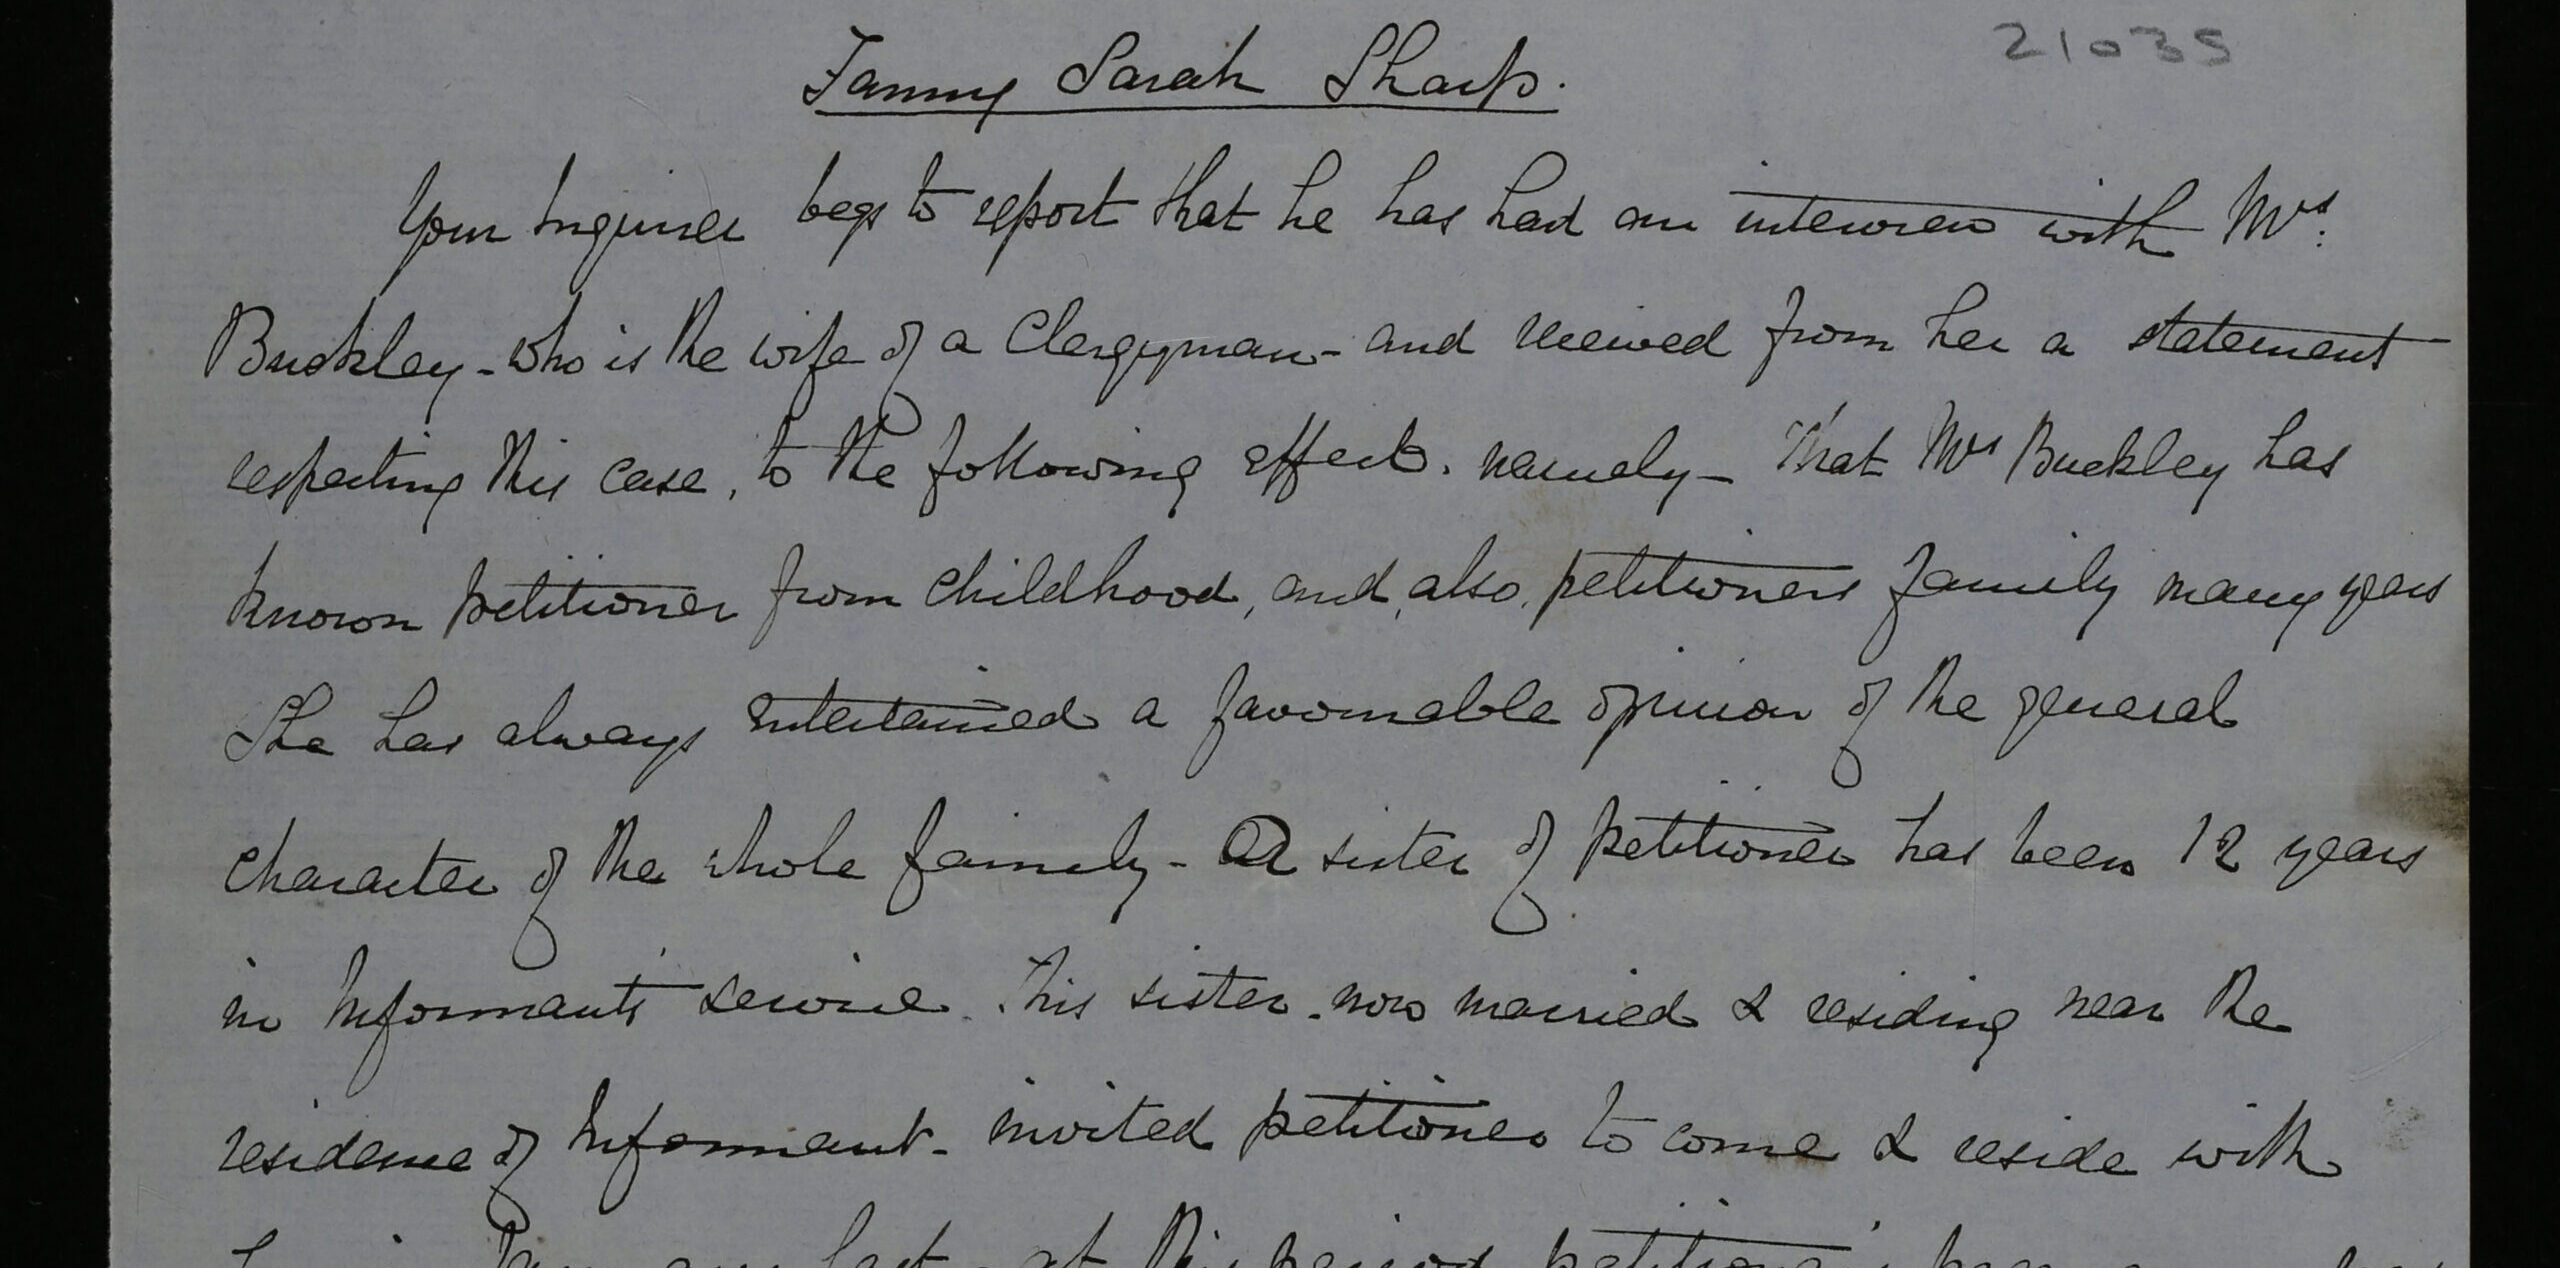 21035
Fanny Sarah Sharp.
Your Inquirer begs to report that he has had an interview with Mrs.
Buckley - who is the wife of a Clergyman - and received from her a statement
respecting this case, to the following effect. namely - That Mrs Buckley has
known petitioner from childhood, and, also, petitioners family many years
She has always entertained a favourable opinion of the general
character of the whole family - A sister of petitioner has been 12 years
in Informant's service. This sister - now married & residing near the
residence of Informant - invited petitioner to come & reside with
in last - at this period